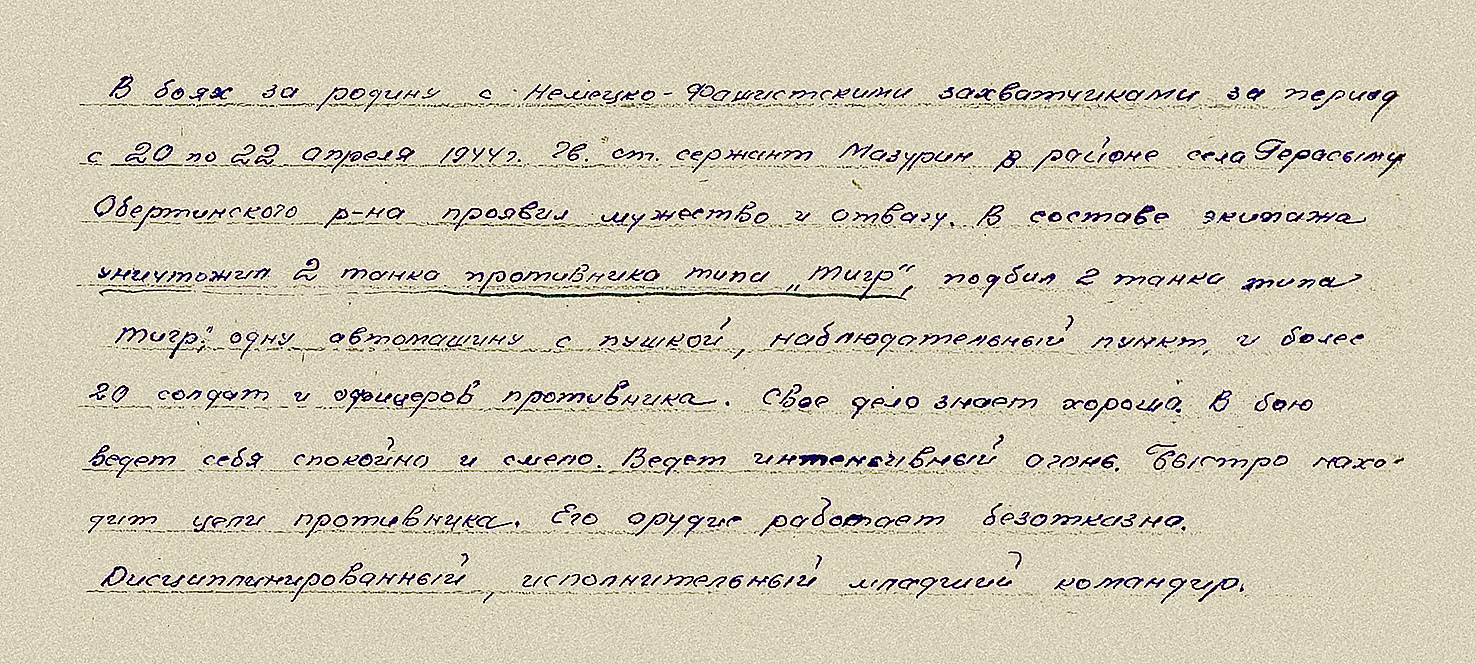 В боях за родину с Немецко-Фашистскими захватчиками за период
с 20 по 22 апреля 1944г. Гв. ст. сержант Мазурин в районе села Герасыму
Обертинского р-на проявил мужество и отвагу. В составе экипажа
уничтожил 2 танка противника типа „Тигр", подбил 2 танка типа
Тигр", одну автомашину с пушкой, наблюдательный пункт, и более
20 солдат и офицеров противника. Свое дело знает хорошо. В бою
ведет себя спокойно и смело. Ведет интенсивный огонь. Быстро нахо-
дит цели противника. Его орудие работает безотказно.
Дисциплинированный, исполнительный младший командир.